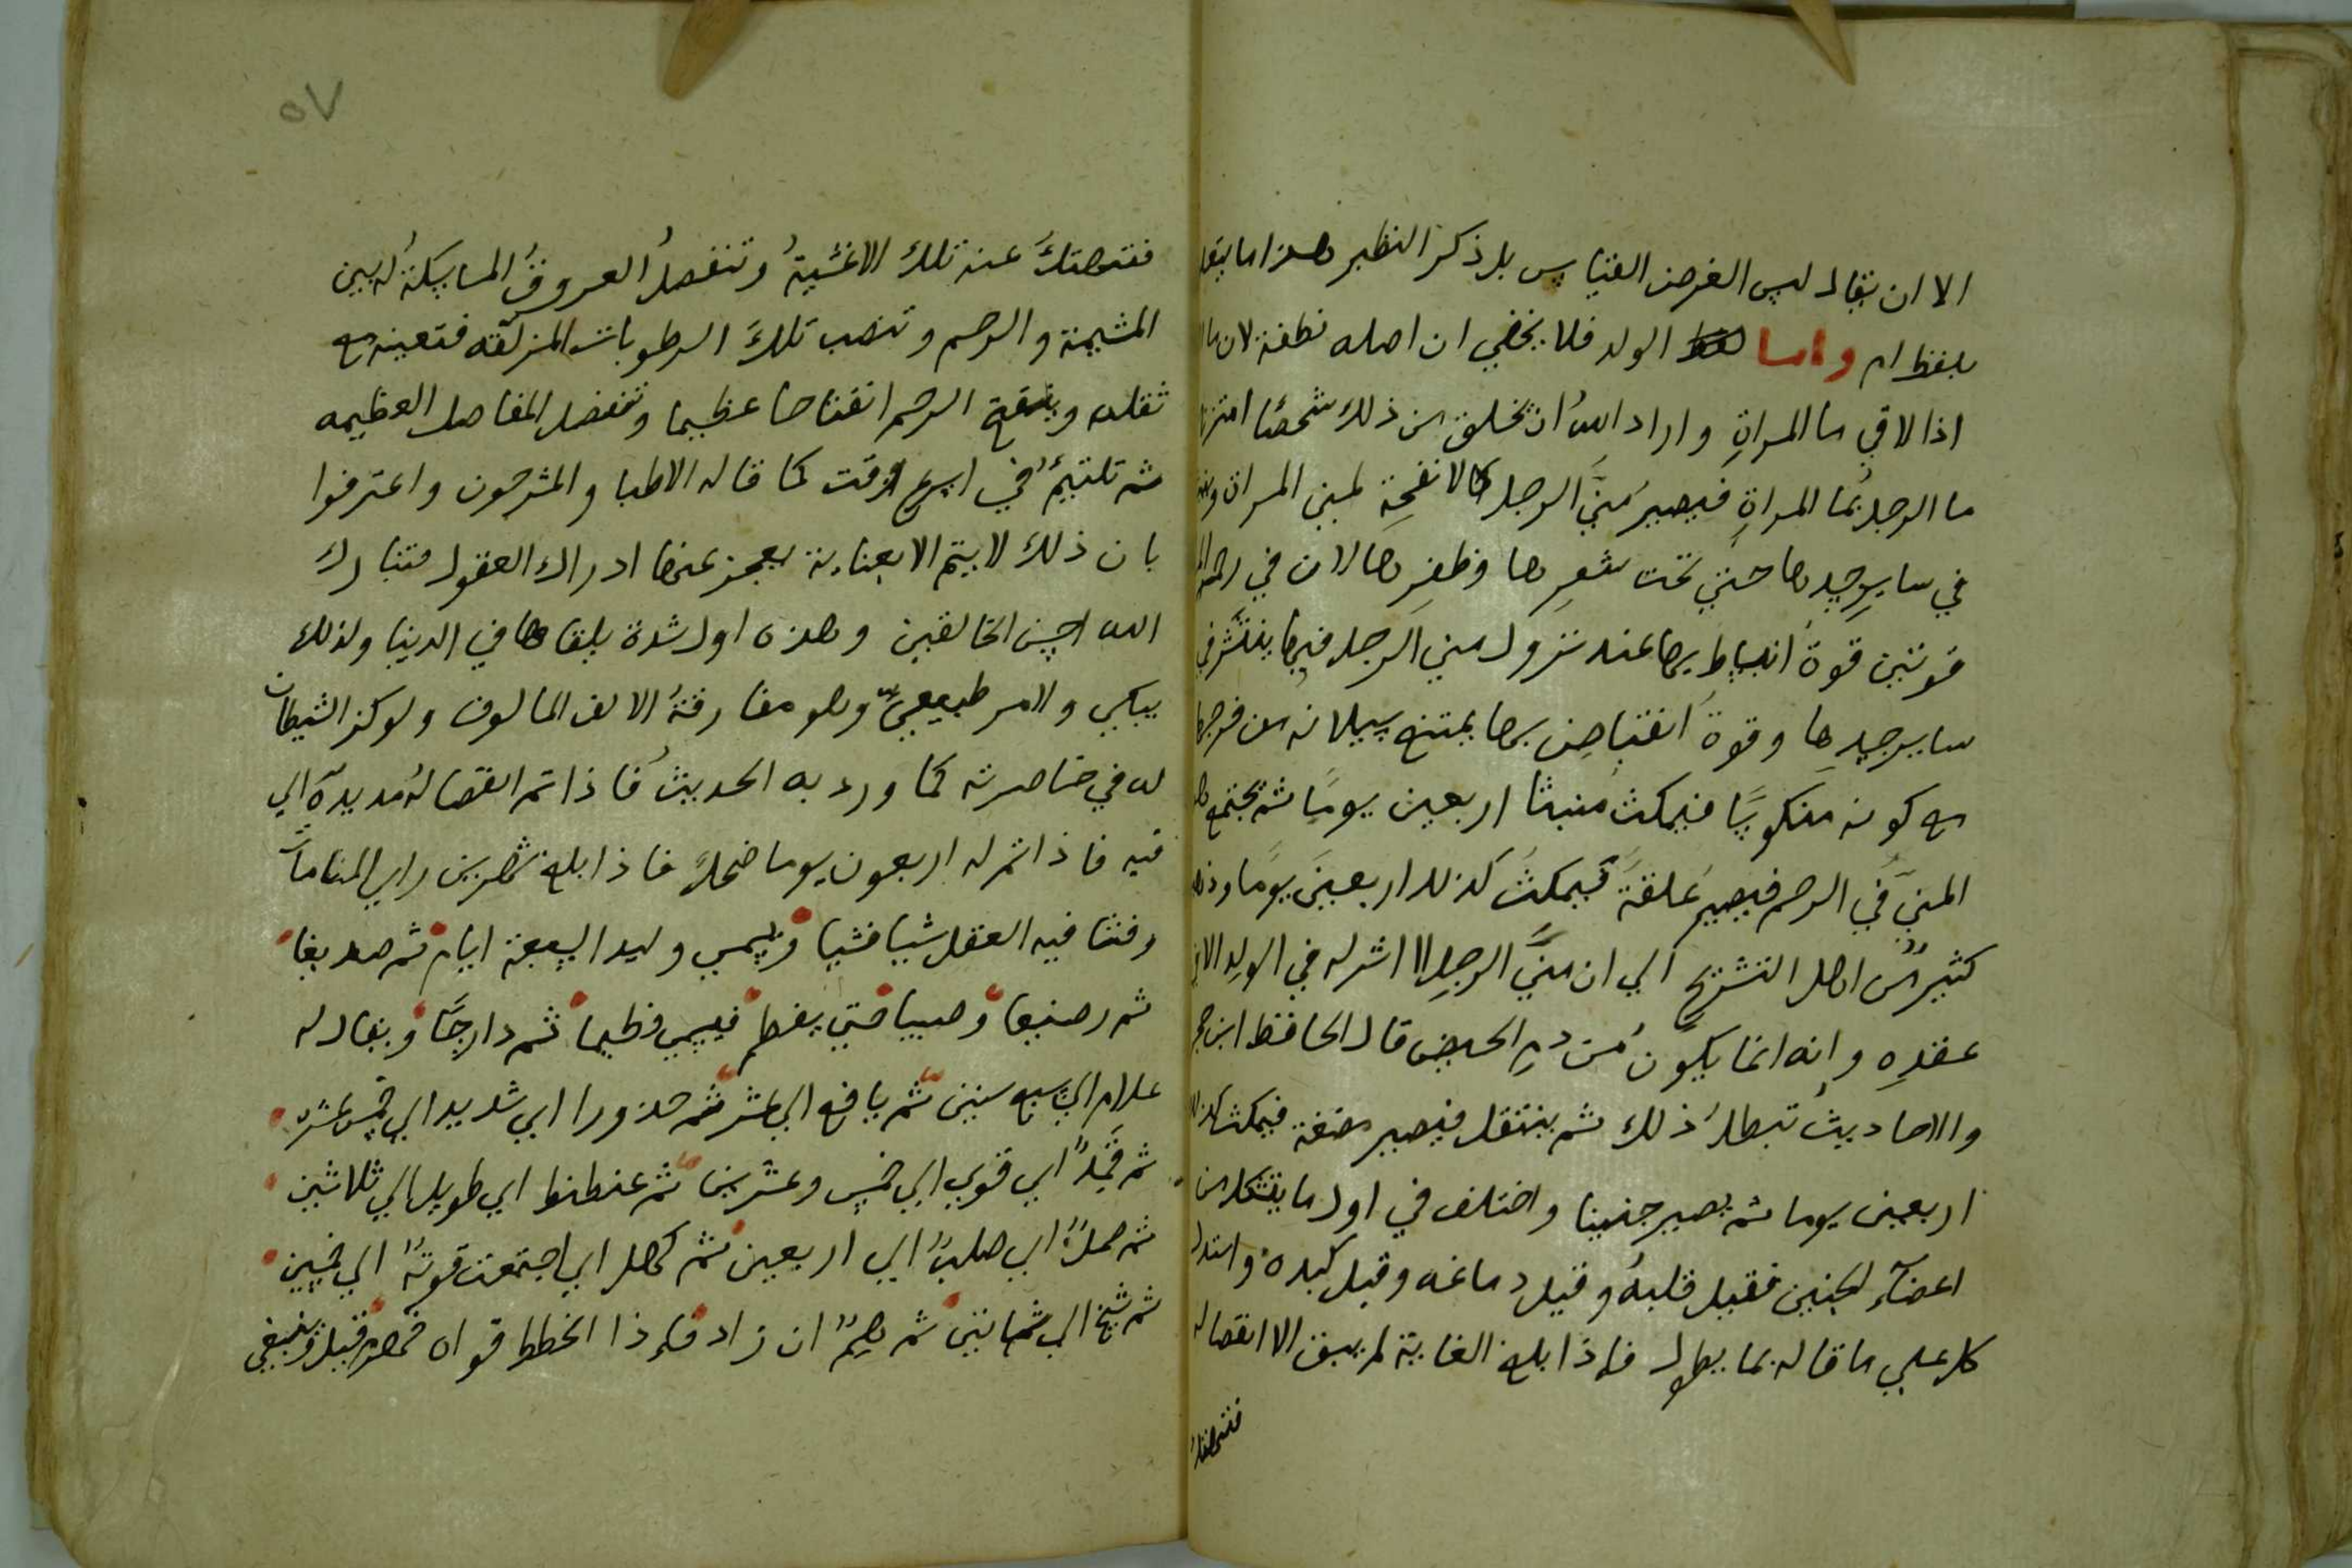 الا ان يقال ليس الغرض القياس بل ذكر النظير هذا ما يتعلق
بلفظ ام واما الولد فلا يخفي ان اصله نطفة لان ما
اذا لاقي ما المراة واراد الله ان يخلق من ذلك شخصا امتزج
ما الرجل بما المراة فيصير مني الرجل كالانفحة لمبني المراة
في ساير جسدها حتي تحت شعرها وظفرها لان في رحم
قوتين قوة انبساط بها عند نزول مني الرجل فيها ينتشر في
ساير جسدها وقوة انقباض بها يمتنع سيلانه من فرجها
مع كونه منكوسا فيمكث منبثا اربعين يوما ثم يجتمع
المني في الرحم فيصير علقة فيمكث كذلك اربعين يوما وذهب
كثير من اهل التشريح الي ان مني الرجل لا اثر له في الولد الا في
عقده وانه انما يكون من دم الحيض قال الحافظ ابن حجر
والاحاديث تبطل ذلك ثم ينتقل فيصير مضغة فيمكث كذلك
اربعين يوما ثم يصير جنينا واختلف في اول ما يتشكل من
اعضآء الجنين فقيل قلبه وقيل دماغه وقيل كبده واستدل
كل علي ما قاله بما يطول فاذا بلغ الغاية لم يبق الا انفصاله
فتنهتك
٥٧
فتنهتك عنه تلك الاغشية وتنفصل العروق الماسكة له بين
المشيمة والرحم وتنصب تلك الرطوبات المزلقة فتعينه مع
ثقله وينفتح الرحم انفتاحا عظيما وتنفصل المفاصل العظيمه
ثم تلتيم في اسرع وقت كما قاله الاطبا والمشرحون واعترفوا
بان ذلك لا يتم الا بعناية يعجز عنها ادراك العقول فتبارك
الله احسن الخالقين وهذه اول شدة يلقاها في الدنيا ولذلك
يبكي والامر طبيعي وهو مفارقة الالف المالوف ولوكز الشيطان
له في خاصرته كما ورد به الحديث فاذا تم انفصاله مد يده الي
فيه فاذا تم له اربعون يوما ضحك فاذا بلغ شهرين راي المنامات
وفشا فيه العقل شيا فشيا ويسمي وليدا لسبعة ايام ثم صديغا
ثم رضيعا وصبيا حتي يفطم فيسمي فطيما ثم دارجا ويقال له
غلام الي سبع سنين ثم يافع الي عشر ثم حزورا اي شديد الي خمس عشرة
ثم قمدا اي قوي الي خمس وعشرين ثم عنطنطا اي طويل الي ثلاثين
ثم صملا اي صلب الي اربعين ثم كهل اي اجتمعت قوته الي خمسين
ثم شيخ الي ثمانين ثم هم ان زاد فاذا انحطط قواه فهرم وقيل وينبغي